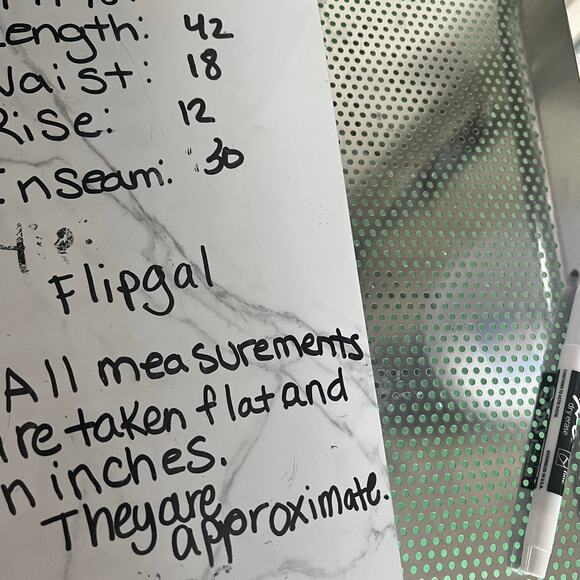 Length: 42
Waist: 18
Rise: 12
Inseam: 30
Flipgal
All measurements
are taken flat and
in inches.
They are
approximate.
dry erase